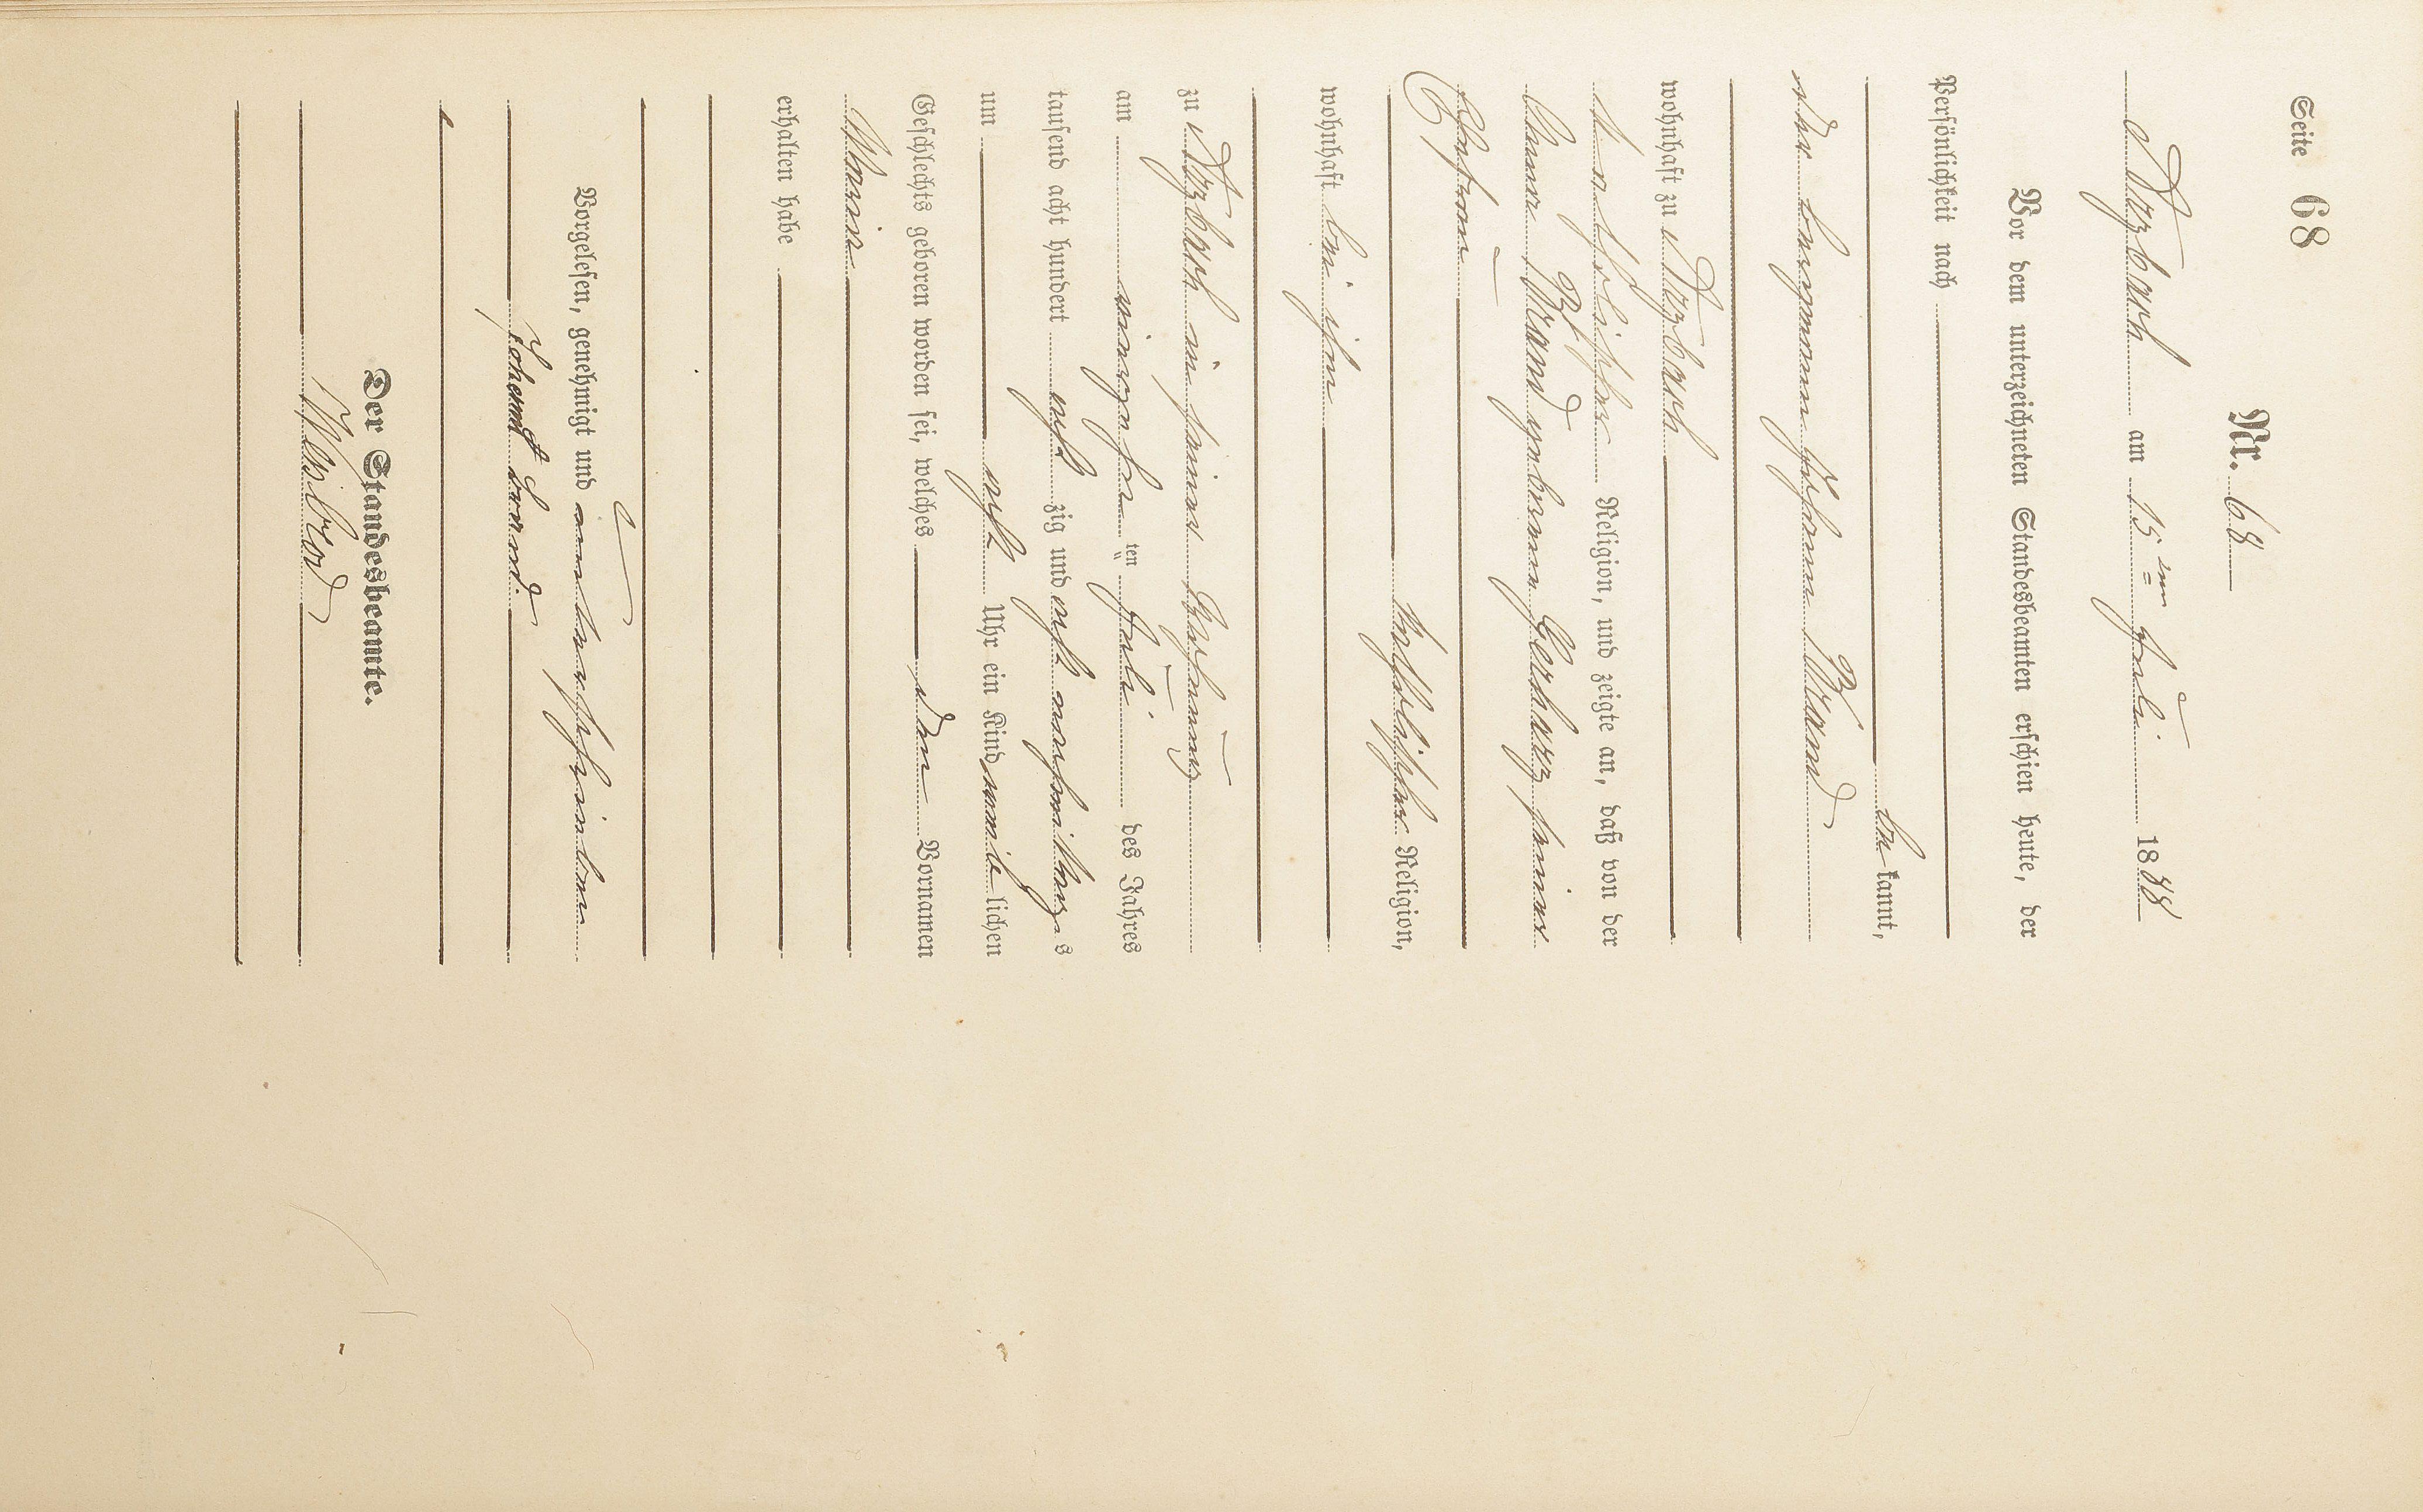 Seite 68
Nr. 68
Arzbach am 15ten Juli 1888
Vor dem unterzeichneten Standesbeamten erschien heute, der
Persönlichkeit nach
bekannt,
der Bergmann Johann Brand
wohnhaft zu Arzbach
katholischer Religion, und zeigte an, daß von der
Anna Brand geborenen Gerharz seiner
Ehefrau
katholischer Religion,
wohnhaft bei ihm
zu Arzbach in seiner Wohnung
am vierzehn ten Juli des Jahres
tausend acht hundert acht zig und acht nachmittags
um acht Uhr ein Kind weiblichen
Geschlechts geboren worden sei, welches den Vornamen
Maria
erhalten habe
Vorgelesen, genehmigt und unterschrieben
Johann Brand.
Der Standesbeamte.